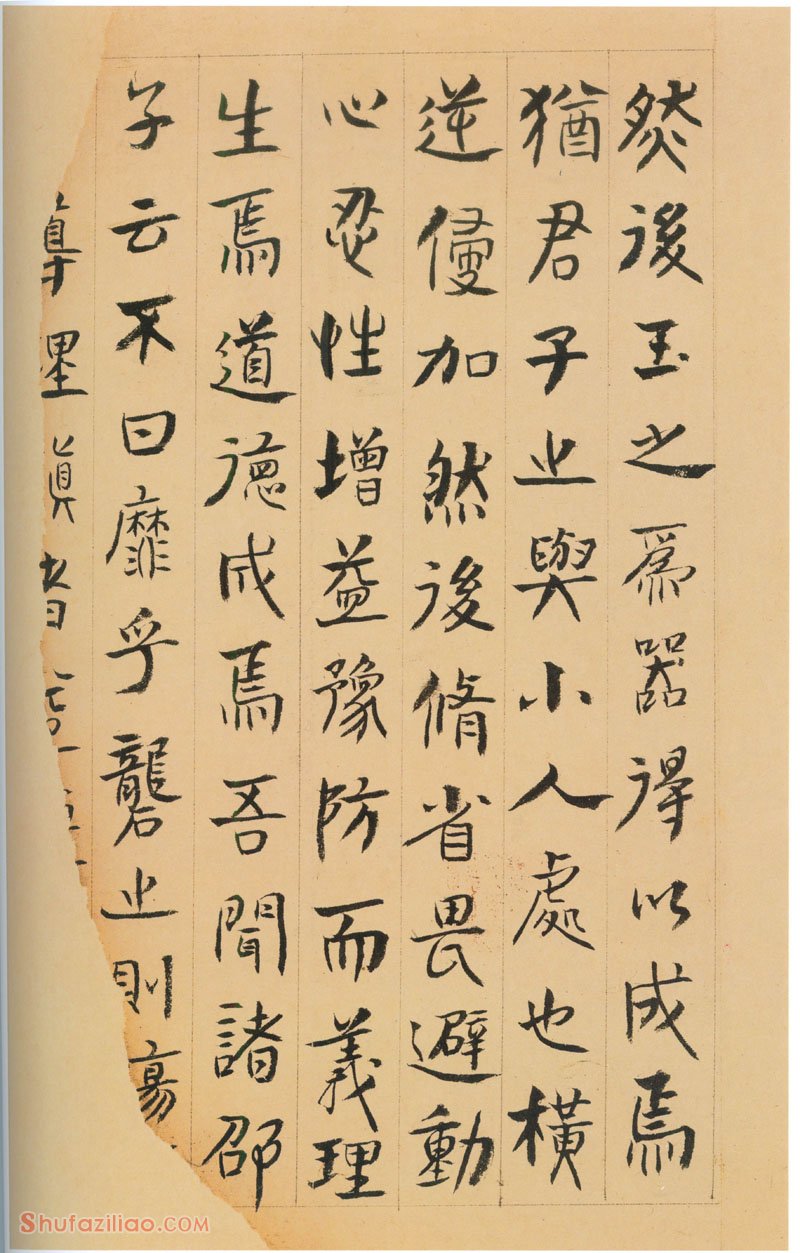 然後玉之爲器得以成焉
猶君子之與小人處也橫
逆侵加然後脩省畏避動
心忍性增益豫防而義理
生焉道德成焉吾聞諸邵
子云不曰靡乎礱之則
Shufaziliao.COM